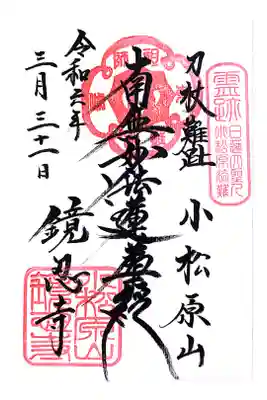 霊跡
日蓮大聖人
小松原法難
刀杖難趾
小松原山
南無妙法蓮華経
鏡忍寺
令和六年
三月三十一日